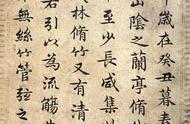 年歲在癸丑暮春
山陰之蘭亭脩
至少長咸集
林脩竹又有清
右引以為流觴
無絲竹管弦之